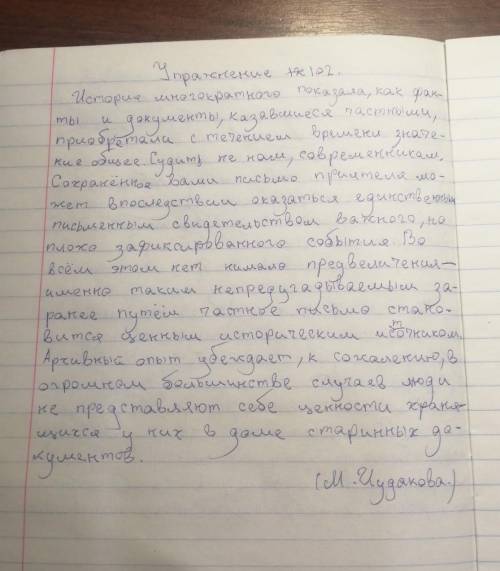 Упражнение №102.
История многократного показала, как фак-
ты и документы, казавшиеся частными,
приобретали с течением времени значе-
ние общее. Судить не нам, современникам.
Сохранённое вами письмо приятеля мо-
жет впоследствии оказаться единственным
письменным свидетельством важного, но
плохо зафиксированного события. Во
всём этом нет нимало предвеличения—
именно таким непредугадываемым за-
ранее путём частное письмо стано-
вится ценным историческим источником.
Архивный опыт убеждает, к сожалению, в
огромном большинстве случаев люди
не представляют себе ценности храня-
щихся у них в доме старинных до-
кументов.
(М. Чудакова.)